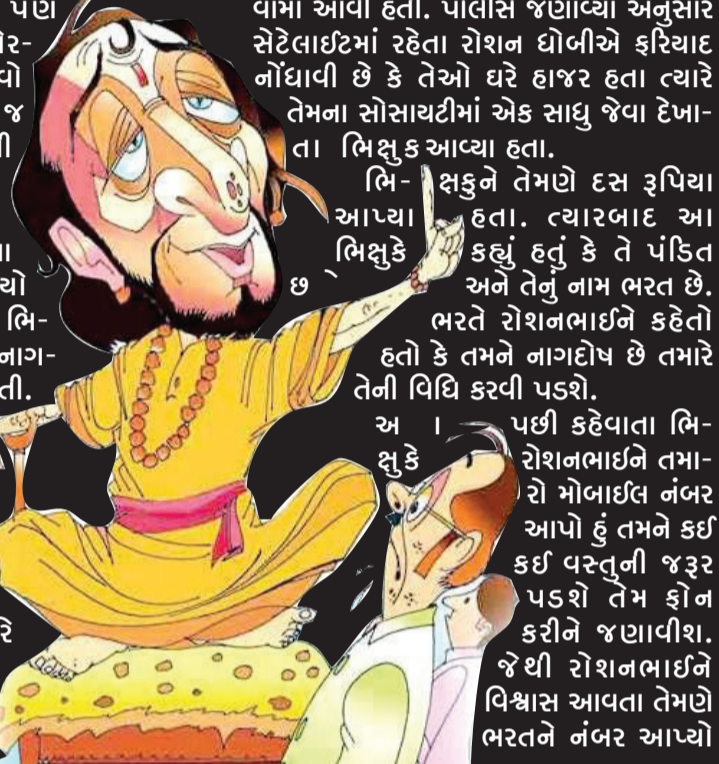 પણ
ેર-
વો
જ
ી
ા
યો
ભિ-
નાગ-
તી.
રે
વામાં આવી હતી. પોલીસે જણાવ્યા અનુસાર
સેટેલાઈટમાં રહેતા રોશન ધોબીએ ફરિયાદ
નોંધાવી છે કે તેઓ ઘરે હાજર હતા ત્યારે
તેમના સોસાયટીમાં એક સાધુ જેવા દેખા-
તા ભિક્ષુક આવ્યા હતા.
ભિ- ક્ષકુને તેમણે દસ રૂપિયા
આપ્યા હતા. ત્યારબાદ આ
ભિક્ષુકે કહ્યું હતું કે તે પંડિત
છ ે અને તેનું નામ ભરત છે.
ભરતે રોશનભાઈને કહેતો
હતો કે તમને નાગદોષ છે તમારે
તેની વિધિ કરવી પડશે.
અ ા પછી કહેવાતા ભિ-
ક્ષુકે રોશનભાઈને તમા-
રો મોબાઈલ નંબર
આપો હું તમને કઈ
કઈ વસ્તુની જરૂર
પડશે તેમ ફોન
કરીને જણાવીશ.
જેથી રોશનભાઈને
વિશ્વાસ આવતા તેમણે
ભરતને નંબર આપ્યો